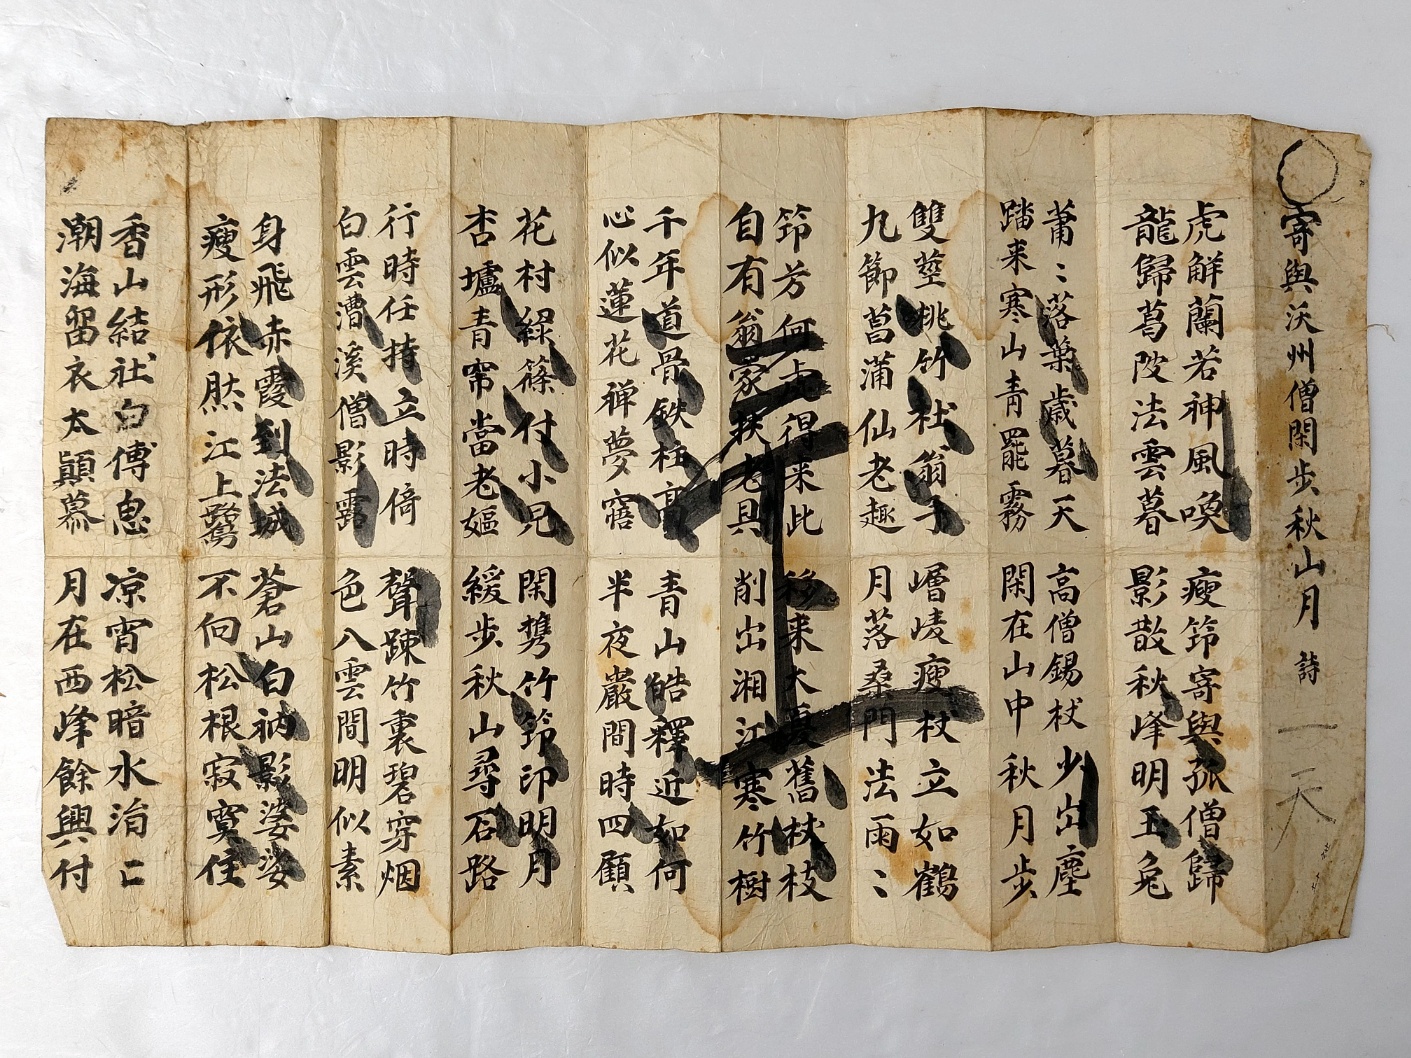 寄與沃州僧閑步秋山月 詩 一天
虎觧蘭若神風喚 瘦筇寄與孤僧歸
龍歸葛陂法雲暮 影散秋峰明玉兔
蕭〻落葉歲暮天 高僧錫杖少出塵
踏来寒山青罷霧 閑在山中秋月步
雙莖桃竹社翁子 嶒崚瘦杖立如鶴
九節菖蒲仙老趣 月落桑門法雨〻
筇芳何處得来此 移来大夏舊杖枝
自有翁家扶老具 削出湘江寒竹樹
千年道骨鉄柱高 青山皓釋近如何
心似蓮花禅夢寤 半夜巖間時四顧
花村緑篠付小兒 閑携竹筇印明月
杏壚青帘當老嫗 緩步秋山尋石路
行時任持立時倚 聲踈竹裏碧穿烟
白雲漕溪僧影露 色入雲間明似素
身飛赤霞到法城 蒼山白衲影婆娑
瘦形依然江上鷺 不向松根寂寞住
香山結社白傅息 凉宵松暗水涓〻
潮海留衣太顚慕 月在西峰餘興付